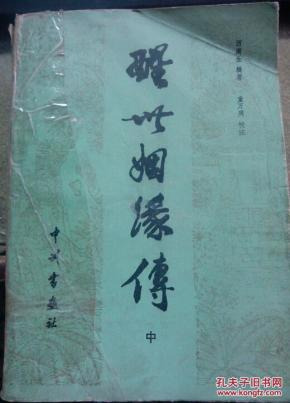 西周生 辑著
童万周 校注
醒世姻缘傳
中
中州書画社
孔夫子旧书网